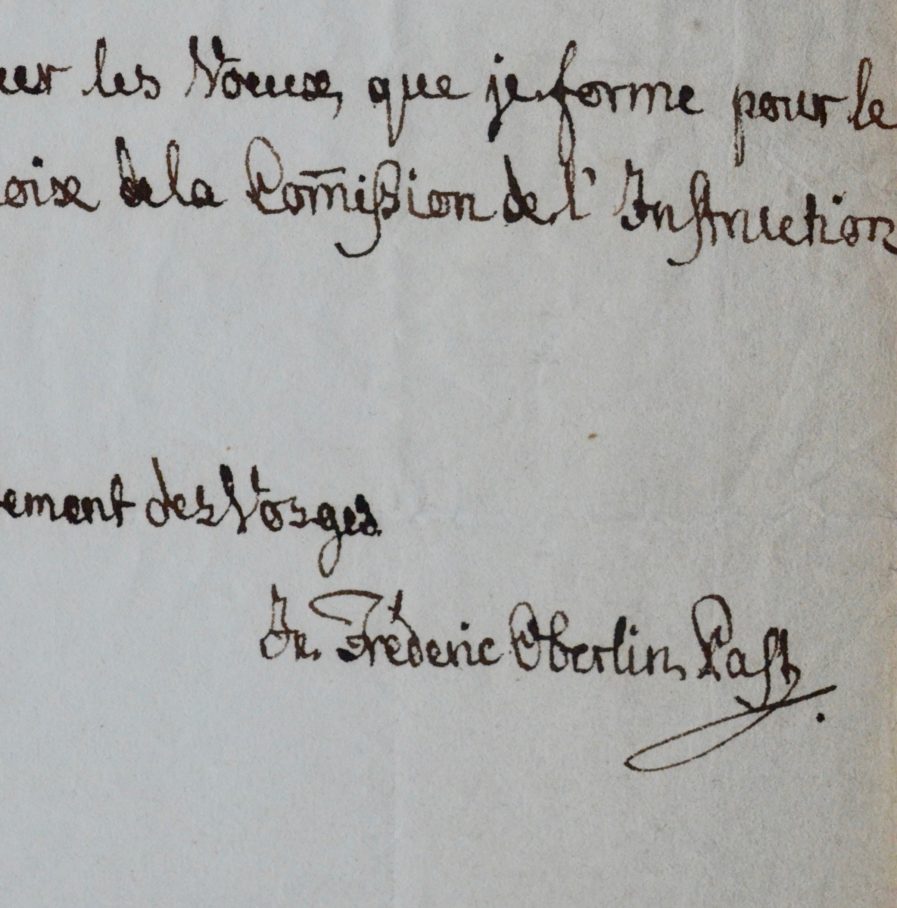 uer les Voeux, que je forme pour le
oix de la Com̅ißion de l'Instruction
ement des Vosges
Jn. Fréderic Oberlin, Past.